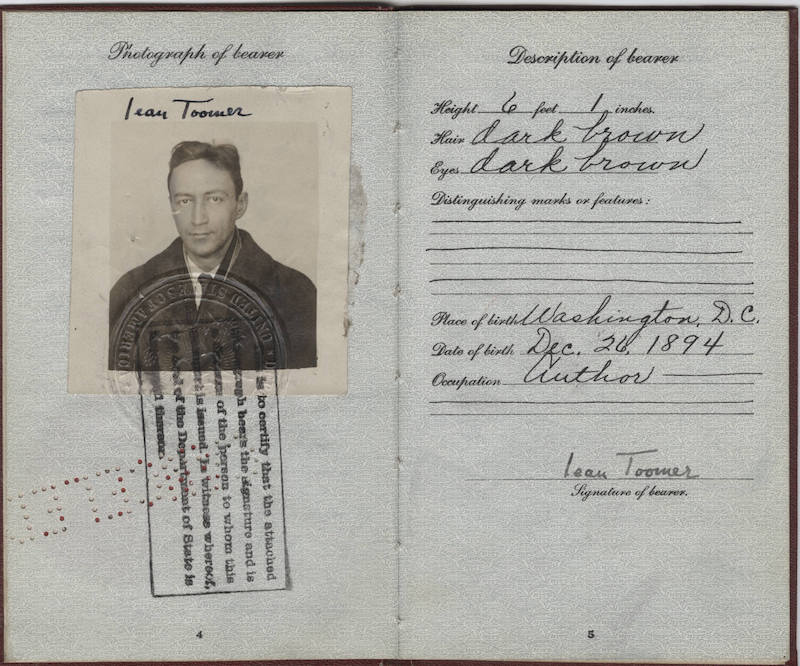 Photograph of bearer
Jean Toomer
UNITED STATES OF AMERICA
is to certify that the attached
bears the signature and is
of the person to whom this
is issued. In witness whereof,
seal of the Department of State is
thereon.
4
Description of bearer
Height 6 feet 1 inches.
Hair dark brown
Eyes dark brown
Distinguishing marks or features:
Place of birth Washington, D.C.
Date of birth Dec. 26, 1894
Occupation Author
Jean Toomer
Signature of bearer.
5